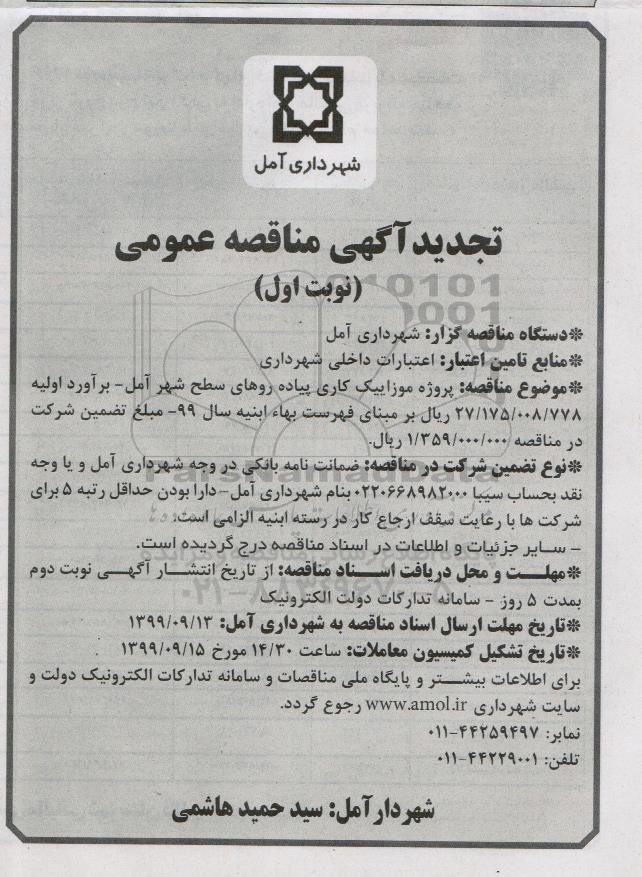 شهرداری آمل
تجدید آگهی مناقصه عمومی
(نوبت اول)
※دستگاه مناقصه گزار: شهرداری آمل
※منابع تامین اعتبار: اعتبارات داخلی شهرداری
※موضوع مناقصه: پروژه موزاییک کاری پیاده روهای سطح شهر آمل- برآورد اولیه
۲۷/۱۷۵/۰۰۸/۷۷۸ ریال بر مبنای فهرست بهاء ابنیه سال ۹۹- مبلغ تضمین شرکت
در مناقصه ۱/۳۵۹/۰۰۰/۰۰۰ ریال.
※نوع تضمین شرکت در مناقصه: ضمانت نامه بانکی در وجه شهرداری آمل و یا وجه
نقد بحساب سیبا ۰۲۲۰۶۶۸۹۸۲۰۰۰ بنام شهرداری آمل-دارا بودن حداقل رتبه ۵ برای
شرکت ها با رعایت سقف ارجاع کار در رسته ابنیه الزامی است.
- سایر جزئیات و اطلاعات در اسناد مناقصه درج گردیده است.
※مهلت و محل دریافت اسناد مناقصه: از تاریخ انتشار آگهی نوبت دوم
بمدت ۵ روز - سامانه تدارکات دولت الکترونیک
※تاریخ مهلت ارسال اسناد مناقصه به شهرداری آمل: ۱۳۹۹/۰۹/۱۳
※تاریخ تشکیل کمیسیون معاملات: ساعت ۱۴/۳۰ مورخ ۱۳۹۹/۰۹/۱۵
برای اطلاعات بیشتر و پایگاه ملی مناقصات و سامانه تدارکات الکترونیک دولت و
سایت شهرداری www.amol.ir رجوع گردد.
نمابر: ۴۴۲۵۹۴۹۷-۰۱۱
تلفن: ۴۴۲۲۹۰۰۱-۰۱۱
شهردار آمل: سید حمید هاشمی
ParsNamadData